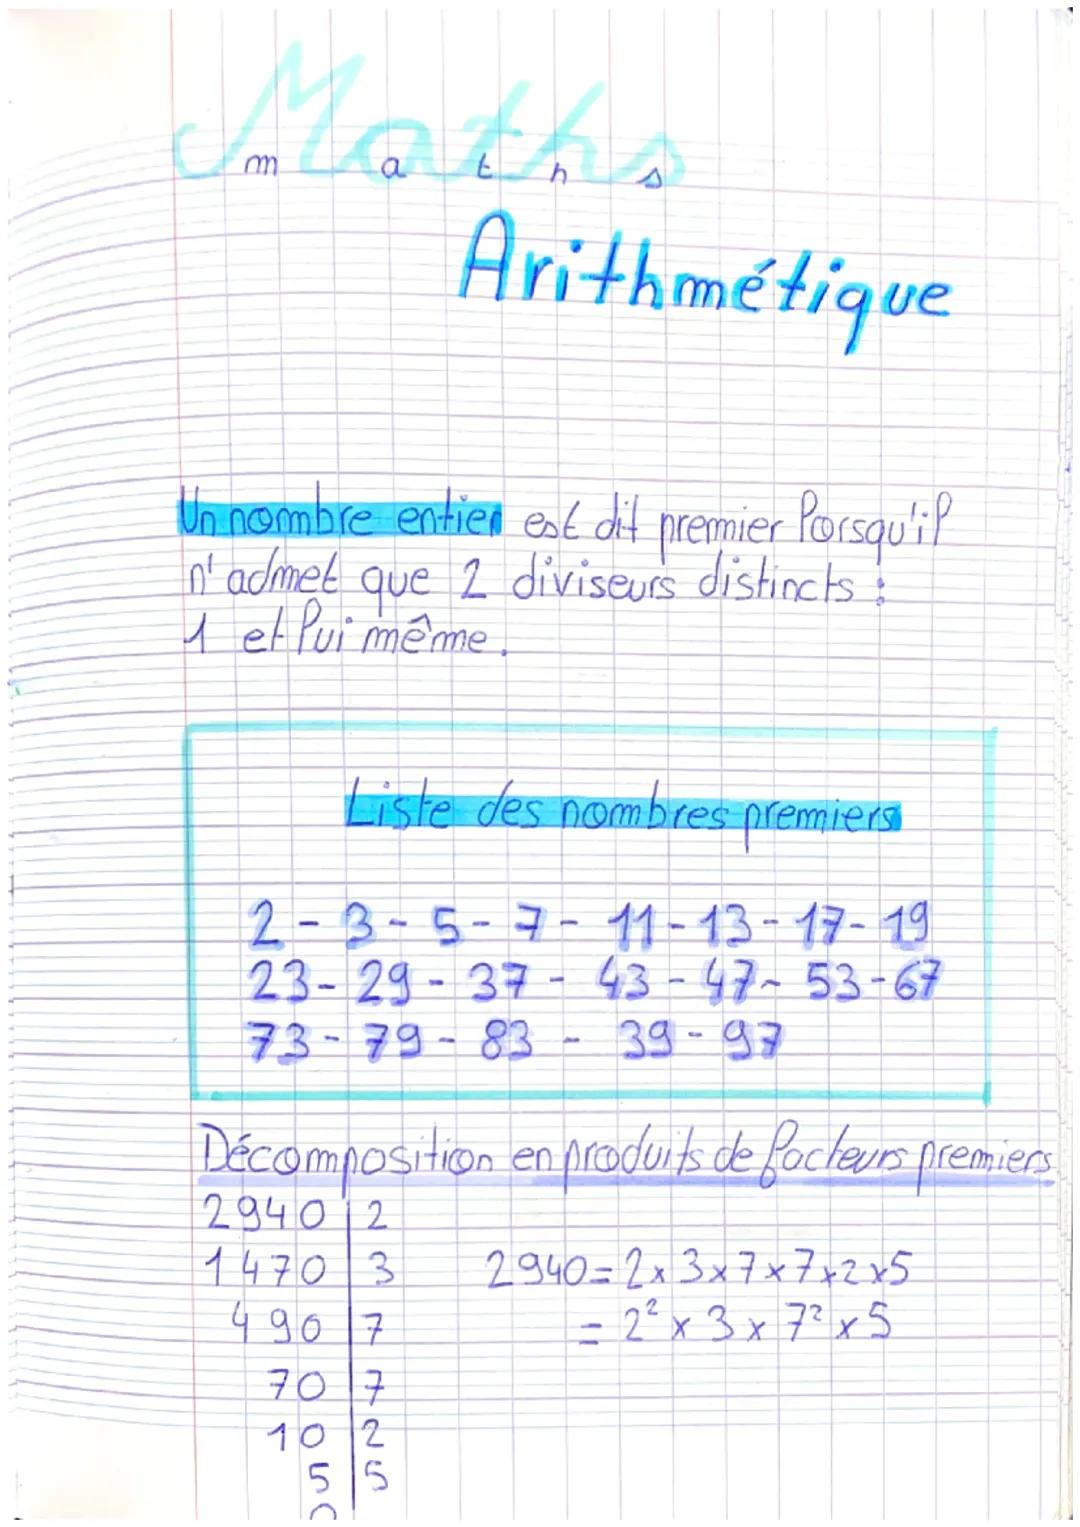 Maths
m a t h s
Arithmétique
Un nombre entier est dit premier lorsqu'il
n'admet que 2 diviseurs distincts :
1 et lui même.
Liste des nombres premiers
2 - 3 - 5 - 7 - 11 - 13 - 17 - 19
23 - 29 - 37 - 43 - 47 - 53 - 67
73 - 79 - 83 - 39 - 97
Décomposition en produits de facteurs premiers
2940 | 2
1470 | 3 2940 = 2 x 3 x 7 x 7 x 2 x 5
490 | 7 = 2² x 3 x 7² x 5
70 | 7
10 | 2
5 | 5